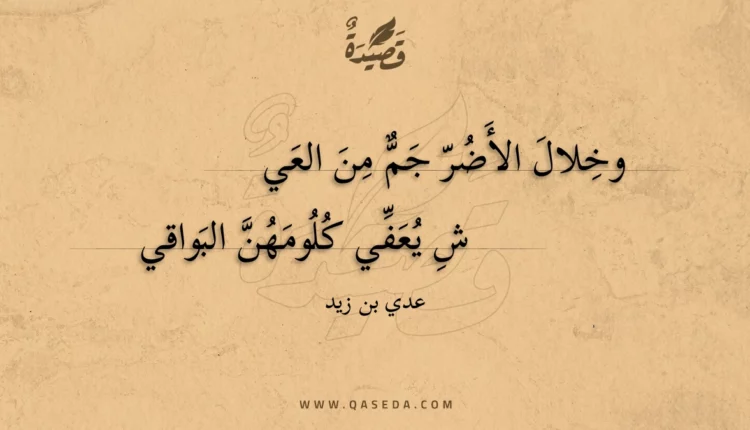 قَصِيْدَةٌ
وخِلالَ الأَضُرّ جَمٌّ مِنَ العَي
شِ يُعَفِّي كُلُومَهُنَّ البَواقي
عدي بن زيد
WWW.QASEDA.COM